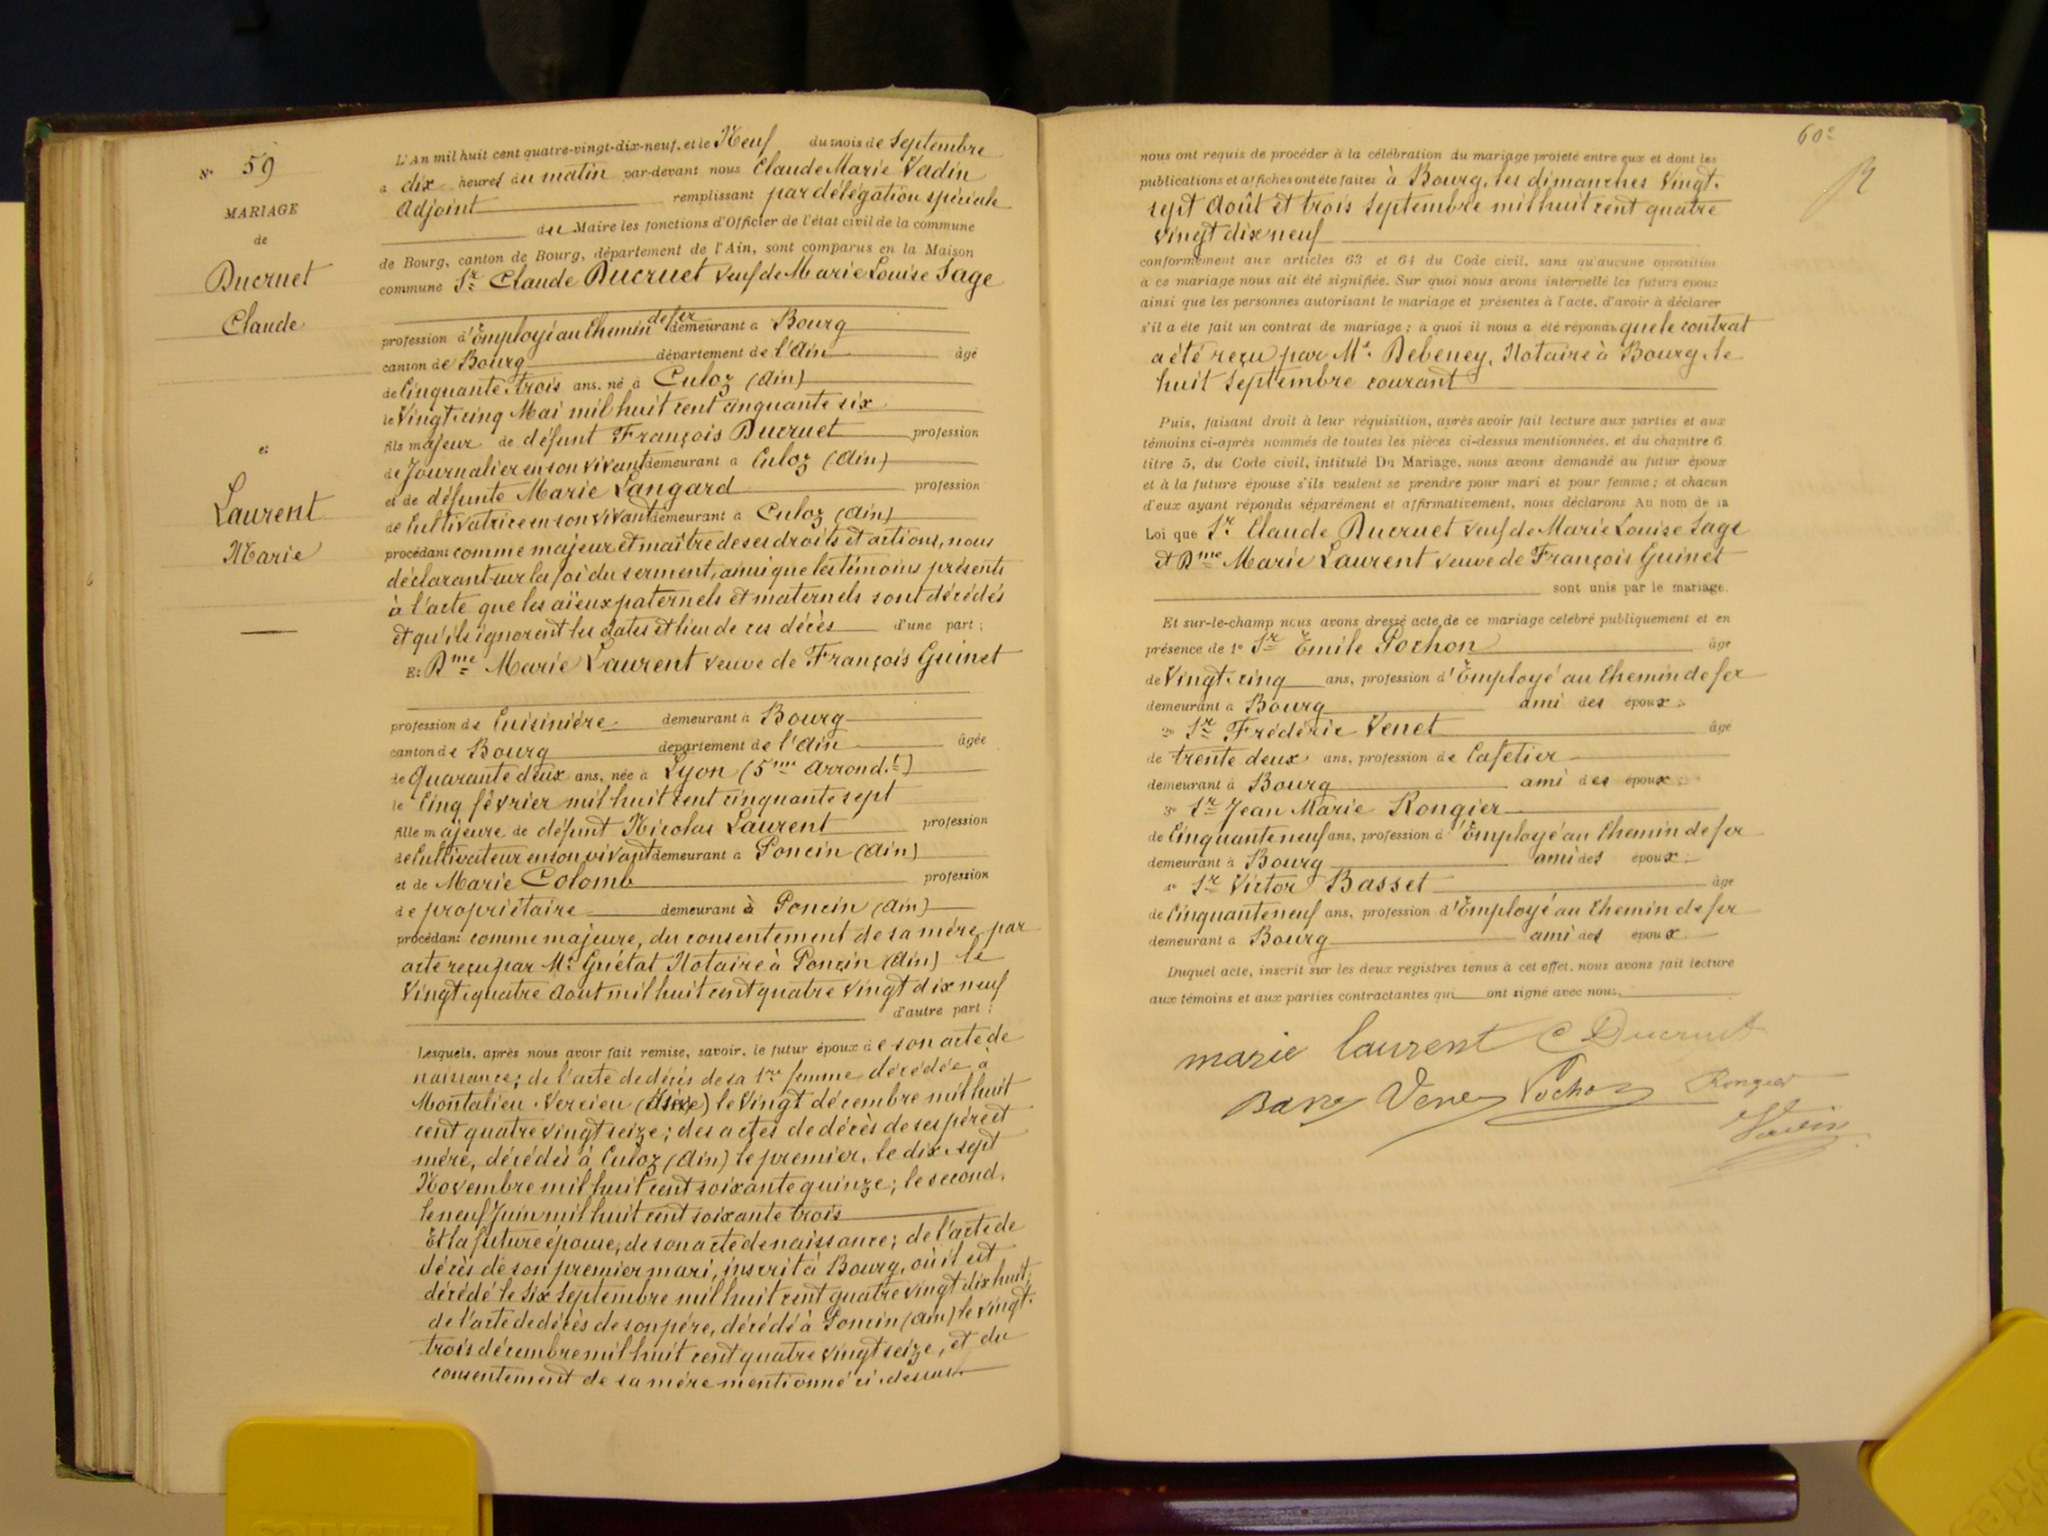 Nº 59
MARIAGE
de
Ducruet
Claude
et
Laurent
Marie
L'An mil huit cent quatre-vingt-dix-neuf, et le Neuf du mois de Septembre
à dix heures du matin par-devant nous Claude Marie Vadin
Adjoint remplissant par délégation spéciale
du Maire les fonctions d'Officier de l'état civil de la commune
de Bourg, canton de Bourg, département de l'Ain, sont comparus en la Maison
commune Sr Claude Ducruet veuf de Marie Louise Sage
profession d'Employé au Chemin de fer demeurant à Bourg
canton de Bourg département de l'Ain âgé
de Cinquante trois ans, né à Culoz (Ain)
le Vingt cinq Mai mil huit cent cinquante six
fils majeur de défunt François Ducruet profession
de Journalier en son vivant demeurant à Culoz (Ain)
et de défunte Marie Langard profession
de Cultivatrice en son vivant demeurant à Culoz (Ain)
procédant comme majeur et maître de ses droits et actions, nous
déclarant sur la foi du serment, ainsi que les témoins présents
à l'acte que les aïeux paternels et maternels sont décédés
et qu'ils ignorent les dates et lieu de ces décès d'une part ;
Et Dme Marie Laurent veuve de François Guinet
profession de Cuisinière demeurant à Bourg
canton de Bourg département de l'Ain âgée
de Quarante deux ans, née à Lyon (5me Arrond.t)
le Cinq février mil huit cent cinquante sept
fille majeure de défunt Nicolas Laurent profession
de Cultivateur en son vivant demeurant à Poncin (Ain)
et de Marie Colomb profession
de propriétaire demeurant à Poncin (Ain)
procédant comme majeure, du consentement de sa mère, par
acte reçu par Me Guétat Notaire à Poncin (Ain) le
Vingt quatre Août mil huit cent quatre vingt dix neuf
d'autre part ;
Lesquels, après nous avoir fait remise, savoir, le futur époux de son acte de
naissance ; de l'acte de décès de sa 1re femme décédée à
Montalieu-Vercieu (Isère) le Vingt décembre mil huit
cent quatre vingt seize ; des actes de décès de ses père et
mère, décédés à Culoz (Ain) le premier, le dix sept
Novembre mil huit cent soixante quinze ; le second,
le neuf Juin mil huit cent soixante trois
Et la future épouse, de son acte de naissance ; de l'acte de
décès de son premier mari, inscrit à Bourg, où il est
décédé le Six Septembre mil huit cent quatre vingt dix huit ;
de l'acte de décès de son père, décédé à Poncin (Ain) le vingt
trois décembre mil huit cent quatre vingt seize, et du
consentement de sa mère mentionné ci-dessus
60e
nous ont requis de procéder à la célébration du mariage projeté entre eux et dont les
publications et affiches ont été faites à Bourg, les dimanches Vingt
sept Août et trois Septembre mil huit cent quatre
vingt dix neuf
conformément aux articles 63 et 64 du Code civil, sans qu'aucune opposition
à ce mariage nous ait été signifiée. Sur quoi nous avons interpellé les futurs époux
ainsi que les personnes autorisant le mariage et présentes à l'acte, d'avoir à déclarer
s'il a été fait un contrat de mariage ; à quoi il nous a été répondu que le contrat
a été reçu par Me Debeney, Notaire à Bourg, le
huit Septembre courant
Puis, faisant droit à leur réquisition, après avoir fait lecture aux parties et aux
témoins ci-après nommés de toutes les pièces ci-dessus mentionnées, et du chapitre 6
titre 5, du Code civil, intitulé Du Mariage, nous avons demandé au futur époux
et à la future épouse s'ils veulent se prendre pour mari et pour femme ; et chacun
d'eux ayant répondu séparément et affirmativement, nous déclarons Au nom de la
Loi que Sr Claude Ducruet veuf de Marie Louise Sage
et Dme Marie Laurent veuve de François Guinet
sont unis par le mariage.
Et sur-le-champ nous avons dressé acte de ce mariage célébré publiquement et en
présence de 1º Sr Émile Pochon âgé
de Vingt cinq ans, profession d'Employé au Chemin de fer
demeurant à Bourg ami des époux ;
2º Sr Frédéric Venet âgé
de trente deux ans, profession de Cafetier
demeurant à Bourg ami des époux ;
3º Sr Jean Marie Rongier
de Cinquante neuf ans, profession d'Employé au Chemin de fer
demeurant à Bourg ami des époux ;
4º Sr Victor Basset âgé
de Cinquante neuf ans, profession d'Employé au Chemin de fer
demeurant à Bourg ami des époux.
Duquel acte, inscrit sur les deux registres tenus à cet effet, nous avons fait lecture
aux témoins et aux parties contractantes qui ont signé avec nous.
marie laurent C Ducruet
Basset Venet Pochon Rongier
Vadin